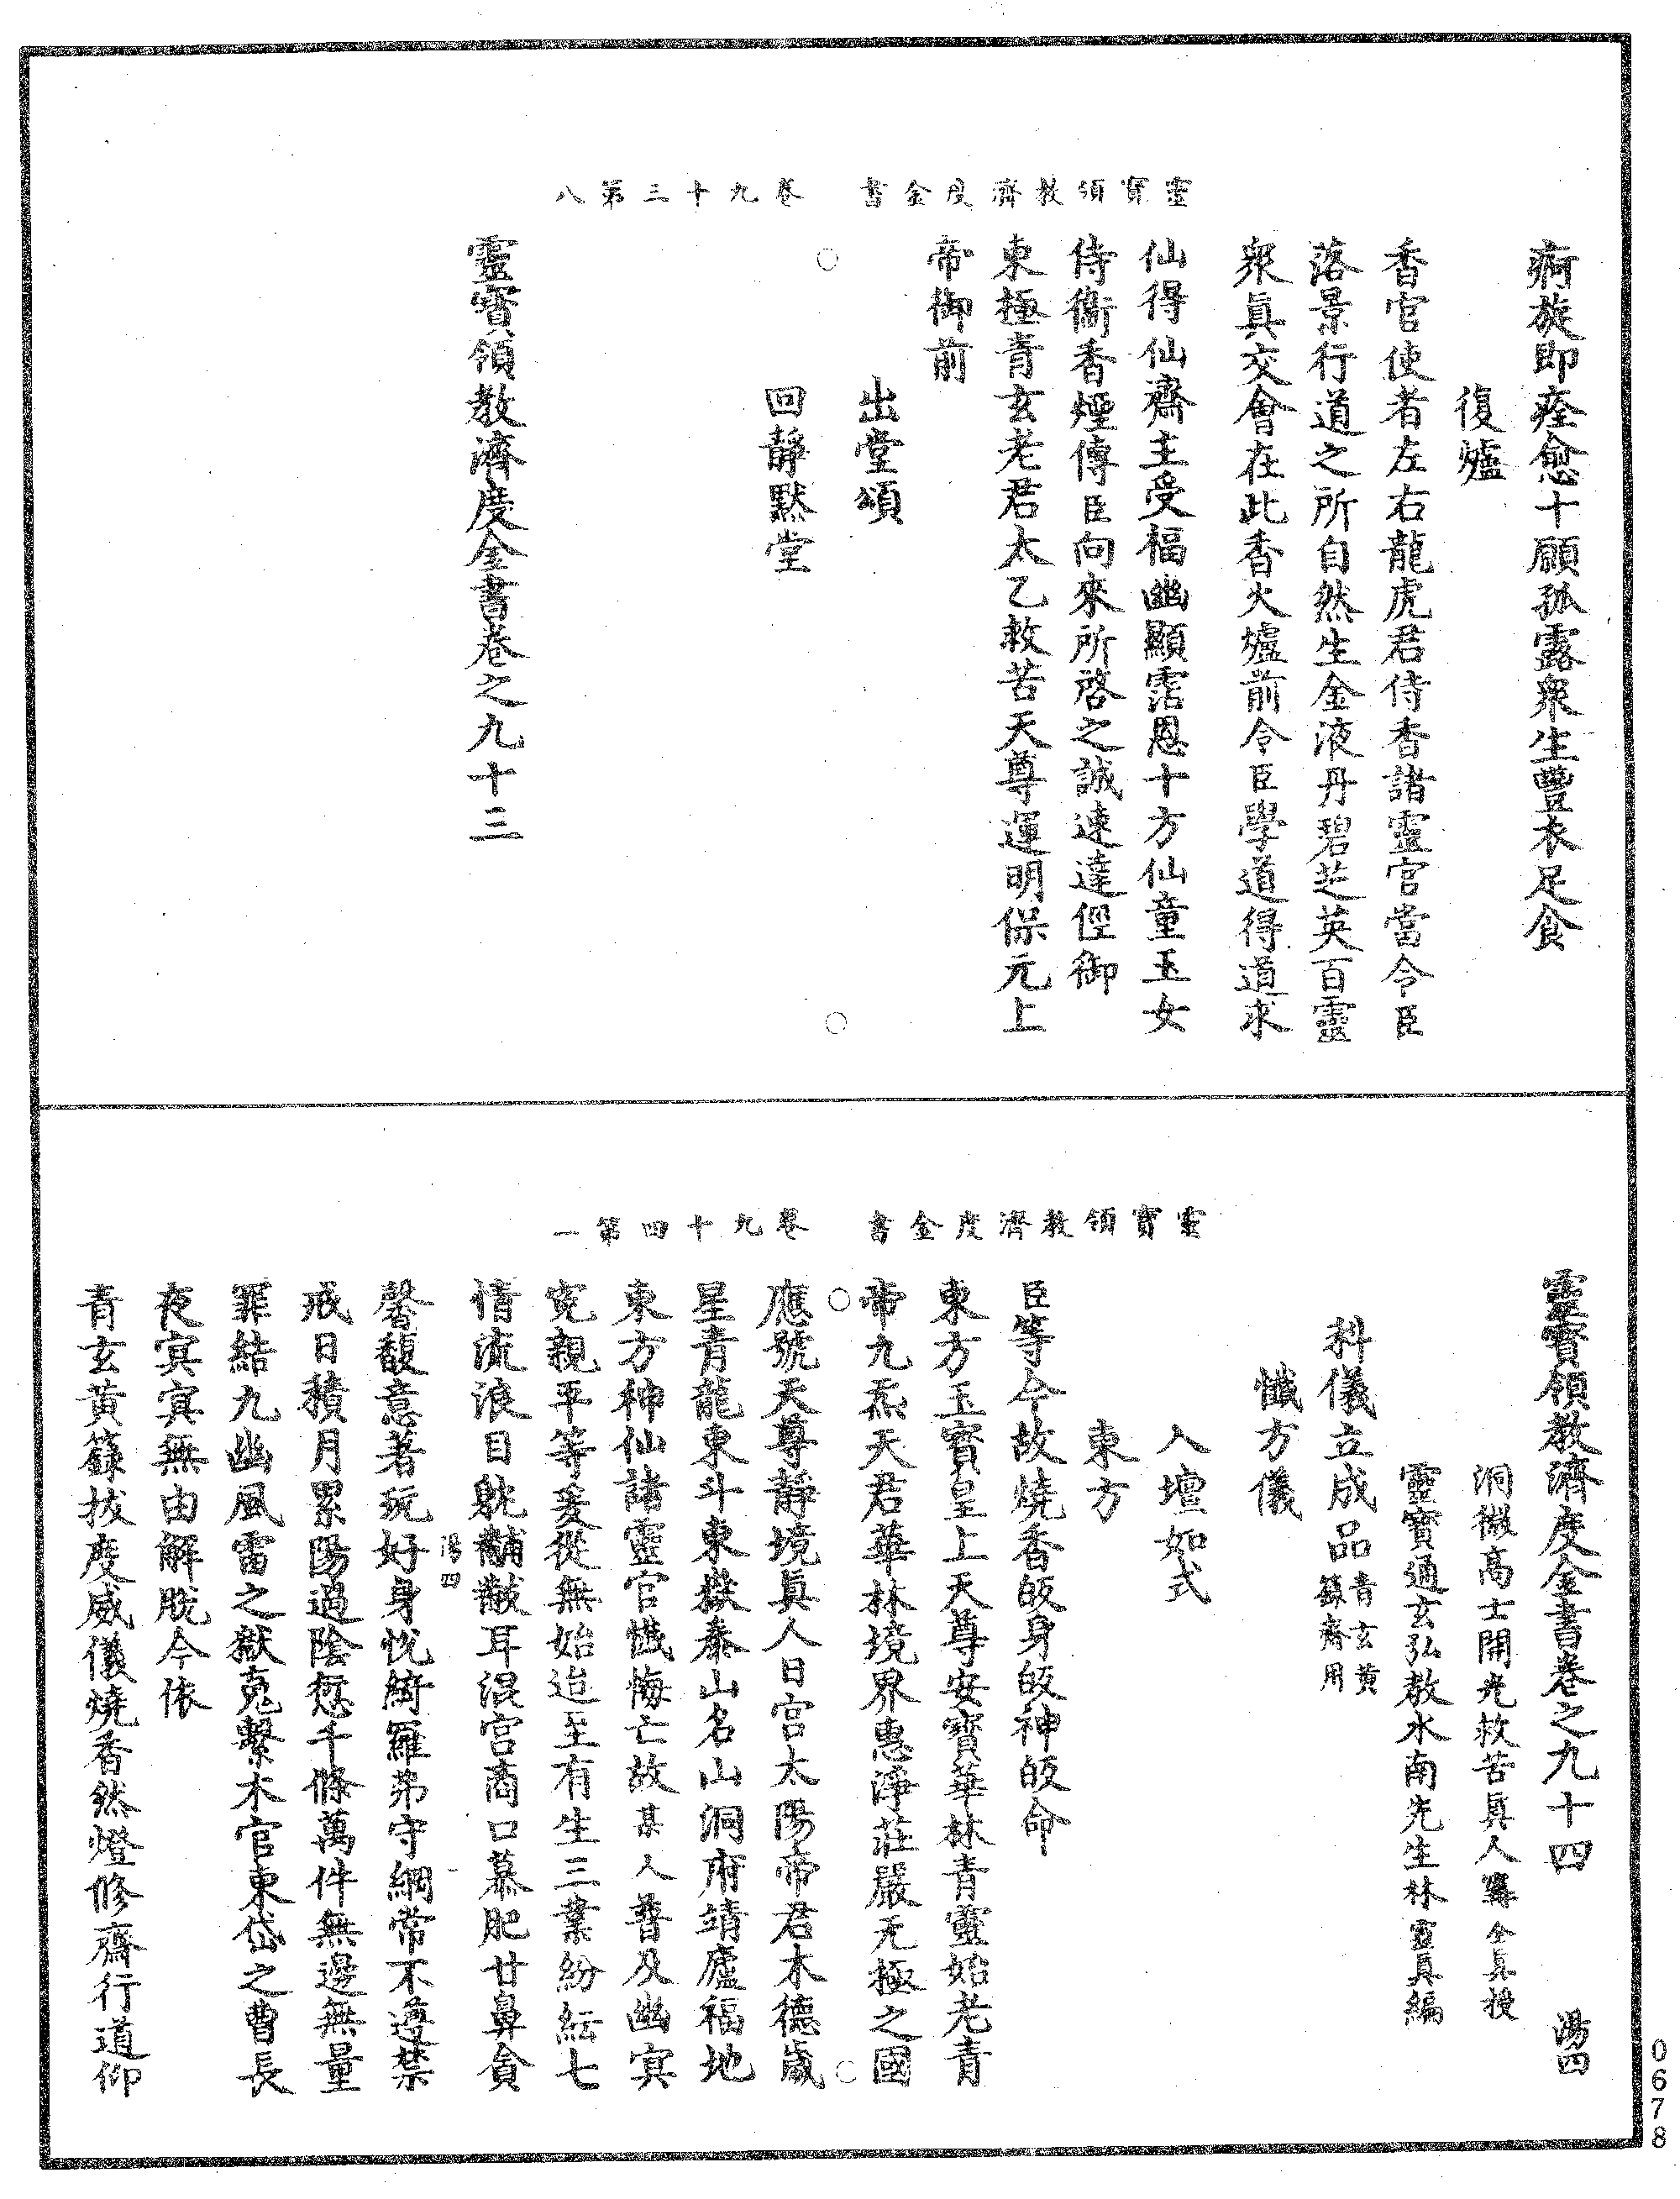 靈寶領教濟度金書　卷九十三第八
痾旋即痊愈十願孤露衆生豐衣足食
復爐
香官使者左右龍虎君侍香諸靈官當令臣
落景行道之所自然生金液丹碧芝英百靈
衆眞交會在此香火爐前令臣學道得道求
仙得仙齋主受福幽顯霑恩十方仙童玉女
侍衞香煙傳臣向來所啓之誠速達俓御
東極青玄老君太乙救苦天尊運明保元上
帝御前
出堂頌
回靜默堂
靈寶領教濟度金書卷之九十三
靈寶領教濟度金書　卷九十四第一
靈寶領教濟度金書卷之九十四　湯四
洞微高士開光救苦眞人甯全眞授
靈寶通玄弘教水南先生林靈眞編
科儀立成品青玄黃籙齋用
懺方儀
入壇如式
東方
臣等今故燒香皈身皈神皈命
東方玉寶皇上天尊安寶華林青靈始老青
帝九炁天君華林境界惠淨莊嚴无極之國
應號天尊靜境眞人日宮太陽帝君木德歲
星青龍東斗東嶽泰山名山洞府靖廬福地
東方神仙諸靈官懺悔亡故某人普及幽冥
寃親平等爰從無始迨至有生三業紛紜七
情流浪目眈黼黻耳混宮商口慕肥甘鼻貪
湯四
馨馥意著玩好身悅綺羅弗守綱常不遵禁
戒日積月累陽過陰愆千條萬件無邊無量
罪結九幽風雷之獄寃繫木官東岱之曹長
夜冥冥無由解脫今依
青玄黃籙拔度威儀燒香然燈修齋行道仰
0678